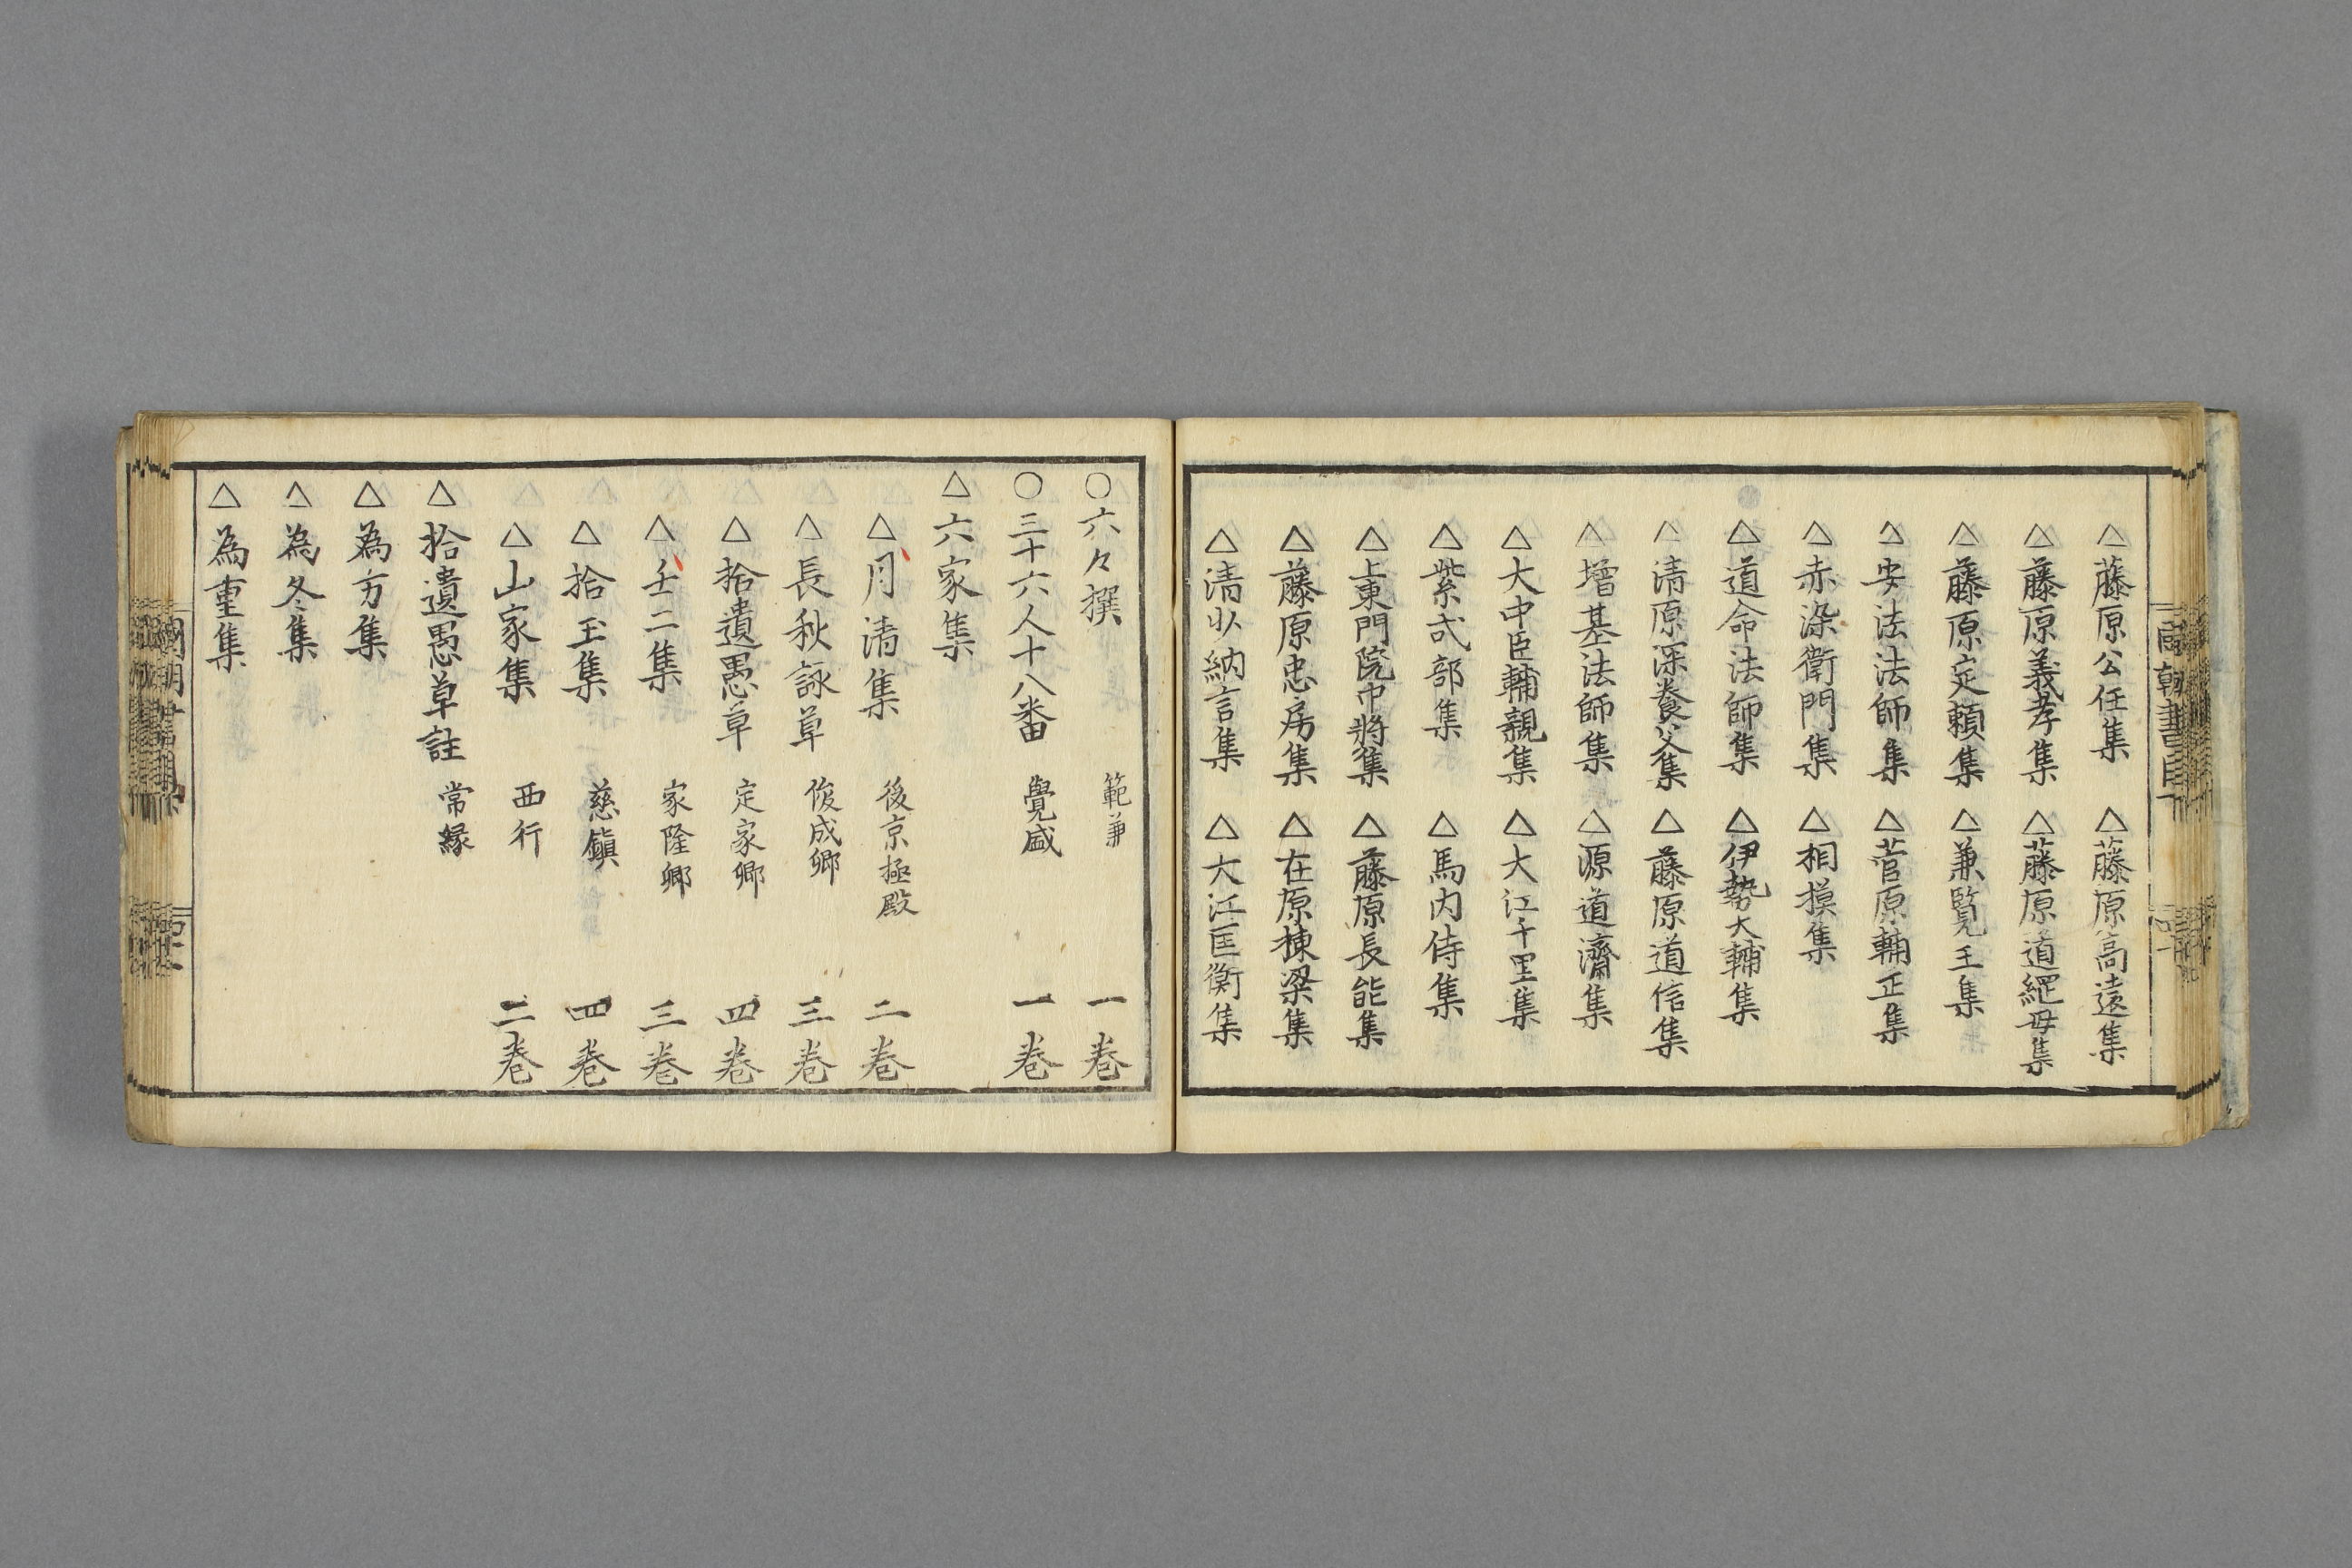 △藤原公任集 △藤原高遠集
△藤原義孝集 △藤原道綱母集
△藤原定頼集 △兼覧王集
△安法法師集 △菅原輔正集
△赤染衛門集 △相摸集
△道命法師集 △伊勢大輔集
△清原深養父集 △藤原道信集
△増基法師集 △源道濟集
△大中臣輔親集 △大江千里集
△紫式部集 △馬内侍集
△上東門院中将集 △藤原長能集
△藤原忠房集 △在原棟梁集
△清少納言集 △大江匡衡集
○六々撰 範兼 一巻
○三十六人十八番 覺盛 一巻
△六家集
△月清集 後京極殿 二巻
△長秋詠草 俊成卿 三巻
△拾遺愚草 定家卿 四巻
△壬二集 家隆卿 三巻
△拾玉集 慈鎮 四巻
△山家集 西行 二巻
△拾遺愚草註 常縁
△為方集
△為冬集
△為重集